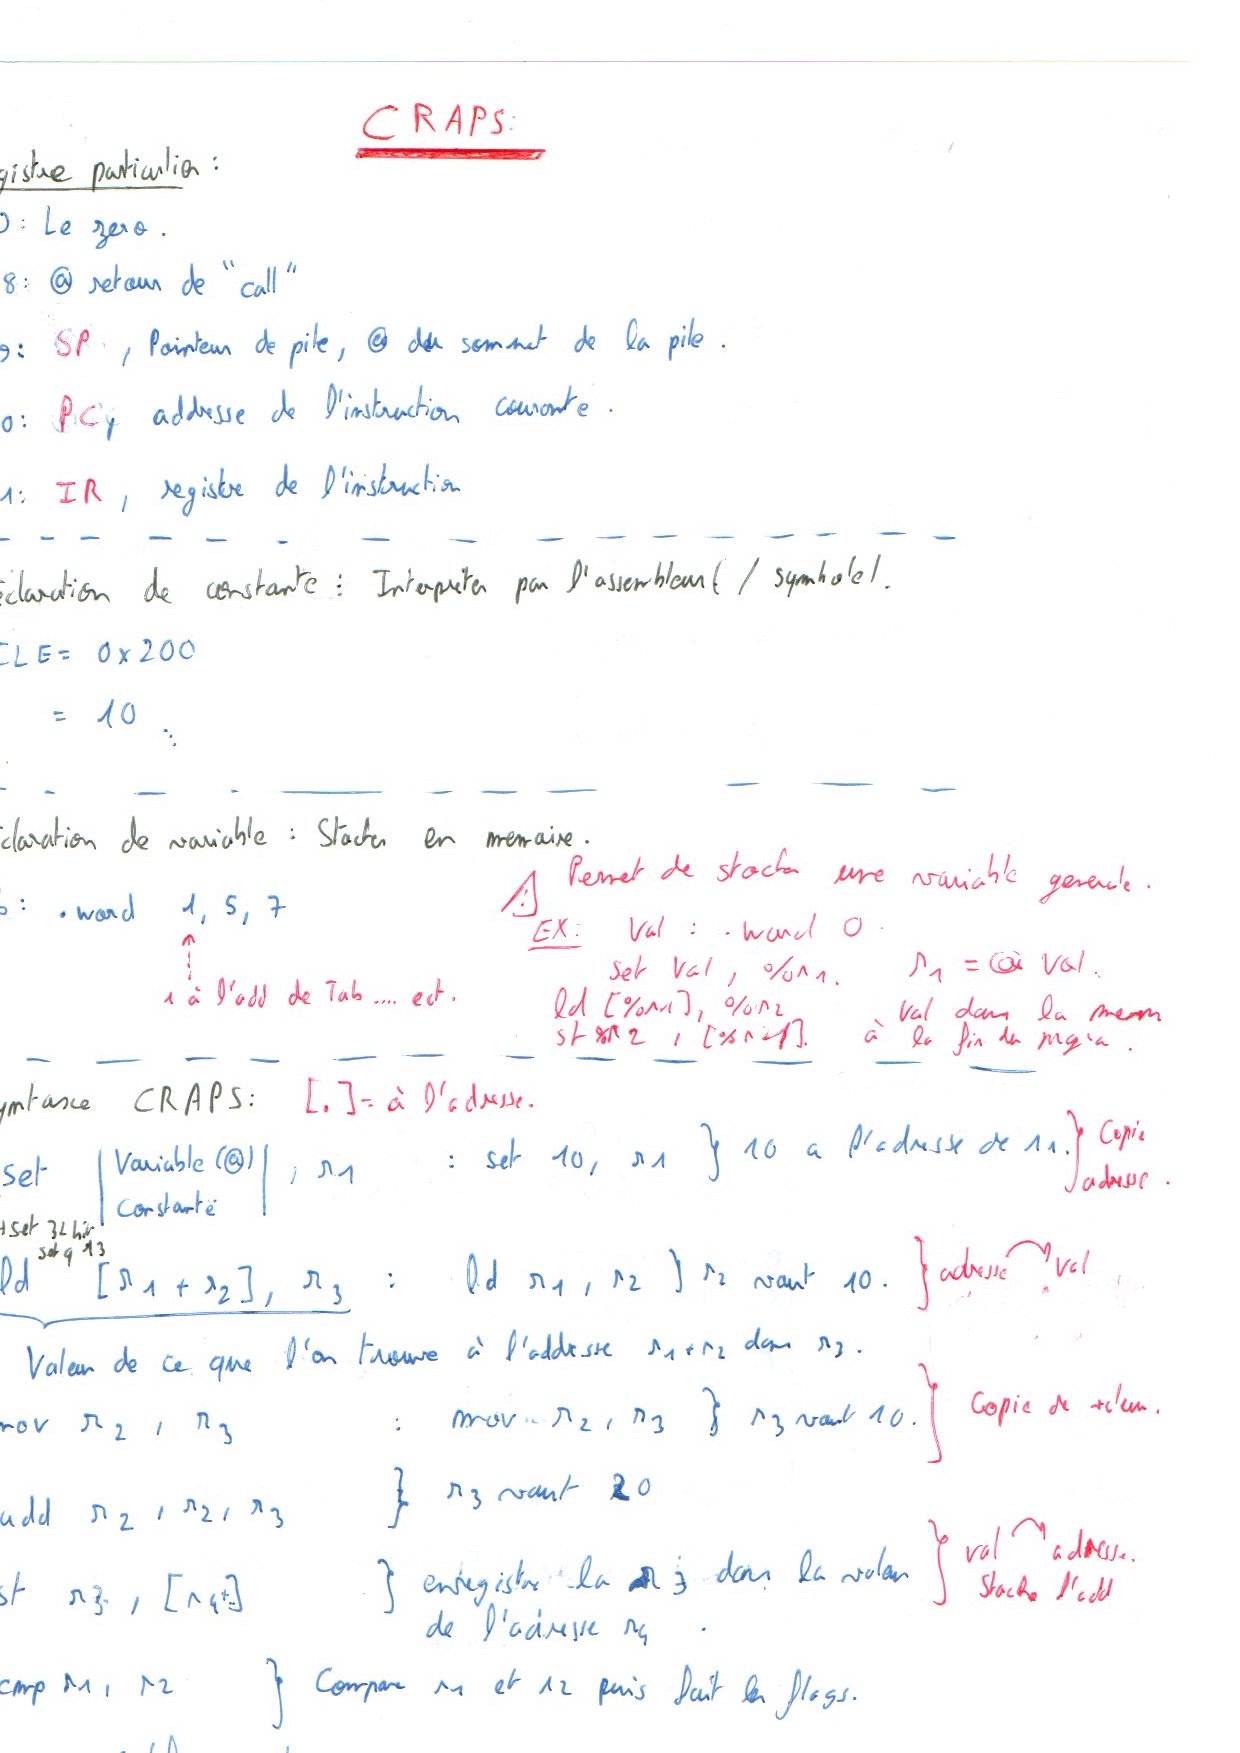 CRAPS:
gistre particulier :
0 : Le zero .
8 : @ retour de "call"
9 : SP , Pointeur de pile, @ du sommet de la pile .
0 : PC, addresse de l'instruction couronte .
1 : IR , registre de l'instruction
éclaration de constante : Interpréter par l'assembleur ( / symbole / .
CLE = 0x200
= 10
claration de variable : Stocker en memoire .
Permet de stocker une variable generale .
b : .word 1, 5, 7
EX : Val : .word 0
1 à l'add de Tab .... ect .
set Val , %r1 . r1 = @ Val .
ld [%r1], %r2 Val dans la mem
st %r2 , [%r1] . à la fin du
yntaxe CRAPS : [.] = à l'adresse .
set | Variable (@) Constante | , r1 : set 10, r1 } 10 a l'adresse de r1 . } Copie adresse .
set 32 bit
set q 13
ld [r1 + r2], r3 : ld r1 , r2 } r2 vaut 10 . } adresse val
Valeur de ce que l'on trouve à l'addresse r1+r2 dans r3 .
mov r2 , r3 : mov r2 , r3 } r3 vaut 10 . } Copie de valeur .
add r2 , r2 , r3 } r3 vaut 20
st r3 , [r4] } enregistrer la r3 dans la valeur } val adresse .
de l'adresse r4 . Stocke l'add
cmp r1 , r2 } Compare r1 et r2 puis fait les flags .